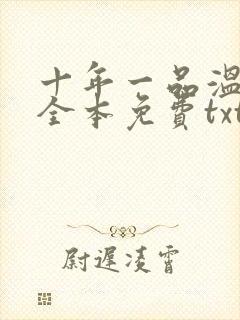 十年一品温
全本免费txt
尉迟凌霄